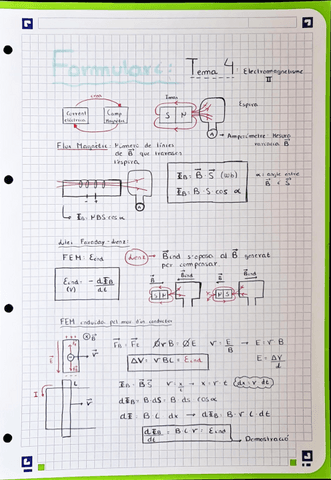 Formulari: Tema 4: Electromagnetisme II
Corrent elèctric
Camp Magnètic
Imant
S N
Espira
A
Amperímetre: Mesura variància B⃗
Flux Magnètic: Número de línies de B⃗ que travessen l'espira
Φ_B = B⃗ · S⃗ (Wb)
Φ_B = B · S cos α
α = angle entre B⃗ i S⃗
Φ_B = NBS cos α
Llei Faraday-Lenz:
FEM: ε_ind
Lenz → B⃗ind s'oposa al B⃗ generat per compensar
ε_ind = - dΦ_B / dt
(V)
FEM induida pel mov. d'un conductor
F⃗_B = F⃗_E
v = E / B → E = v · B
ΔV = v B L = ε_ind
E = ΔV / d
L
I
Φ_B = B⃗ · S⃗
x = v · t
dx = v · dt
dΦ_B = B · dS = B · dS cos α
dΦ = B · L · dx → dΦ_B = B · v · L · dt
dΦ_B / dt = B · L · v = ε_ind
Demostració